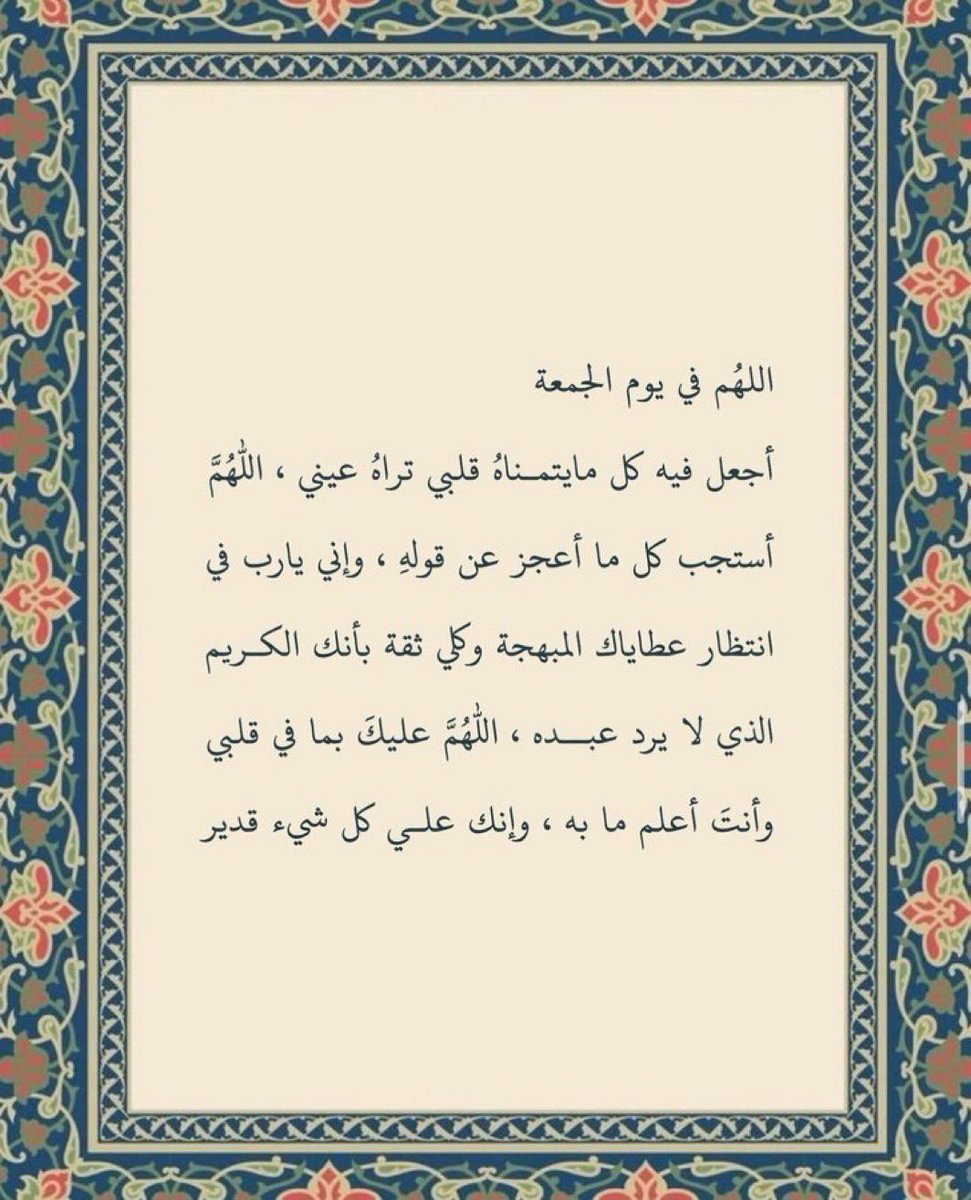 اللهُم في يوم الجمعة
أجعل فيه كل مايتمـناهُ قلبي تراهُ عيني ، اللهُمَّ
أستجب كل ما أعجز عن قولهِ ، وإني يارب في
انتظار عطاياك المبهجة وكلي ثقة بأنك الكـريم
الذي لا يرد عبـــده ، اللهُمَّ عليكَ بما في قلبي
وأنتَ أعلم ما به ، وإنك علـي كل شيء قدير